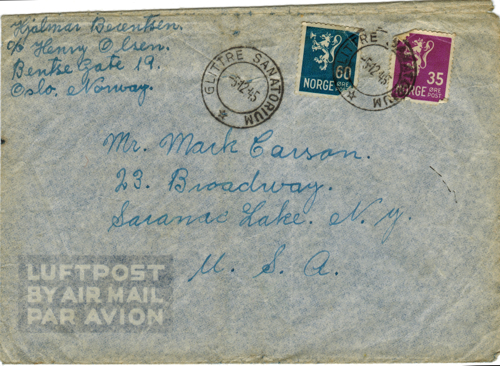 Hjalmar Berentsen.
c/o Henry Olsen.
Bentse Gate 19.
Oslo, Norway.
GLITTRE SANATORIUM
-5.12.45
60
NORGE ØRE
GLITTRE SANATORIUM
12.45
35
NORGE ØRE
POST
Mr. Mark Carson.
23. Broadway.
Saranac Lake. N. Y.
U. S. A.
LUFTPOST
BY AIR MAIL
PAR AVION